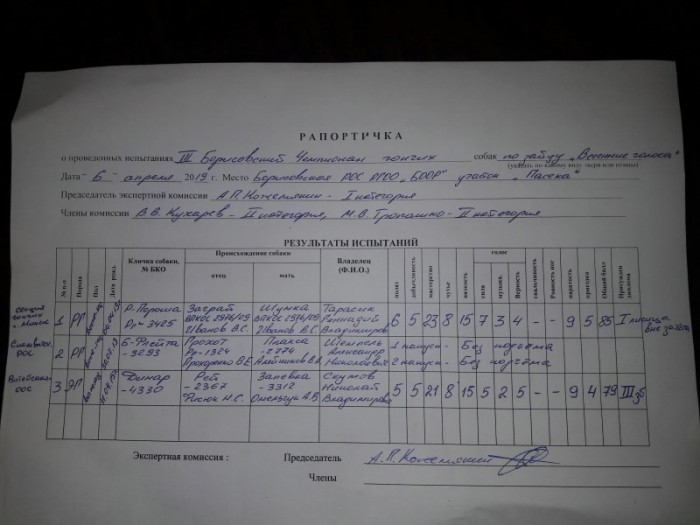 РАПОРТИЧКА
о проведенных испытаниях III Борисовский Чемпионат гончих собак по зайцу „Весенние голоса"
(указать по какому виду зверя или птицы)
Дата " 6 " апреля 2019 г. Место Борисовская РОС РГОО „БООР" угодья „Пасека"
Председатель экспертной комиссии А.П. Кожемякин - I категория
Члены комиссии В.В. Кухарев - II категория, М.В. Трапашко - II категория
РЕЗУЛЬТАТЫ ИСПЫТАНИЙ
№ п п Порода Пол Дата рожд. Кличка собаки, № БКО Происхождение собаки отец мать Владелец (Ф.И.О.) полаз добычливость мастерство чутье вязкость голос сила музыкал. Верность свальчивость Ровность ног паратость приездка Общий балл Присужден диплома
г. Минск 1 РГ Р-Пороша Рг-3425 Заграй Иванов В.С. Шумка Иванов В.С. Тарасик Геннадий Владимиров 6 5 23 8 15 7 3 4 - - 9 5 85 I
РОС 2 РГ Б-Флейта -3293 Грохот Рг-1324 Плакса -2774 Александр Николаевич 1 напуск - Без подъёма
2 напуск - Без подъёма
Витебская РОС 3 Финар -4330 Рей -2367 Запевка -3312 Николай Владимиров 5 5 21 8 15 5 2 5 - - 9 4 79 III
Экспертная комиссия : Председатель А.П. Кожемякин
Члены